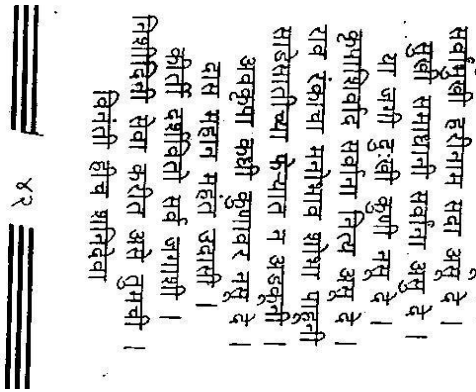 सर्वामुखी हरीनाम सदा असु दे |
सुखी समाधानी सर्वांना असु दे |
या जगी दुःखी कुणी नसु दे |
कृपाशिर्वाद सर्वांना नित्य असु दे |
राव रंकांचा मनोभाव शोभा पाहूनी
साडेसातीच्या फेऱ्यात न अडकूनी |
अवकृपा कधी कुणावर नसु दे |
दास महान महंत उदासी |
कीर्ती दर्शविती सर्व जगाशी |
निशीदिनी सेवा करीत असे तुमची |
विनंती हीच शनिदेवा |
४२